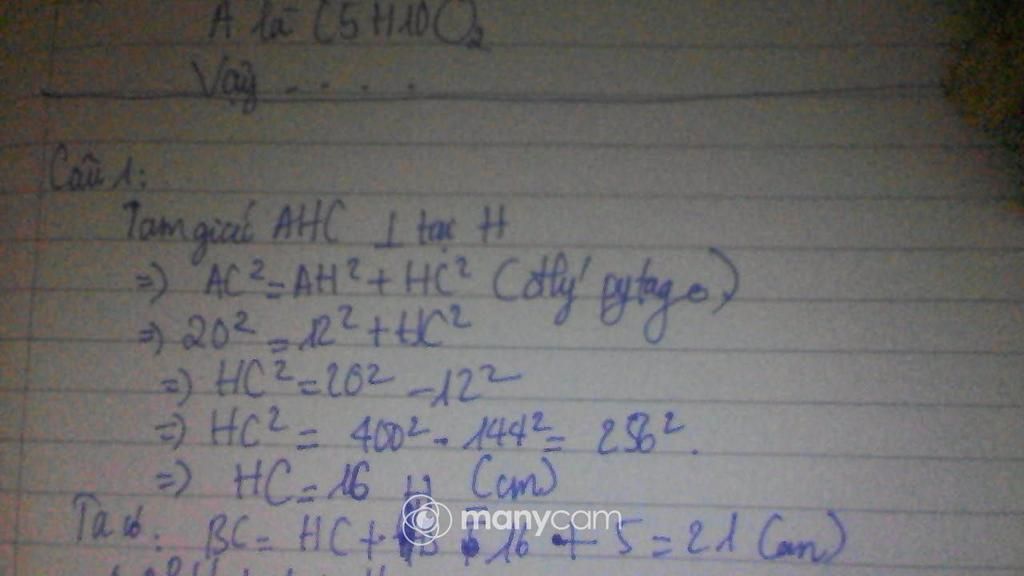 A là C5H10O2
Vậy . . . .
Câu 1:
Tam giác AHC ⊥ tại H
=) AC² = AH² + HC² (đlý pytago)
=) 20² = 12² + HC²
=) HC² = 20² - 12²
=) HC² = 400² - 144² = 256².
=) HC = 16 (cm)
Ta có: BC = HC + 16 + 5 = 21 (cm)
manycam